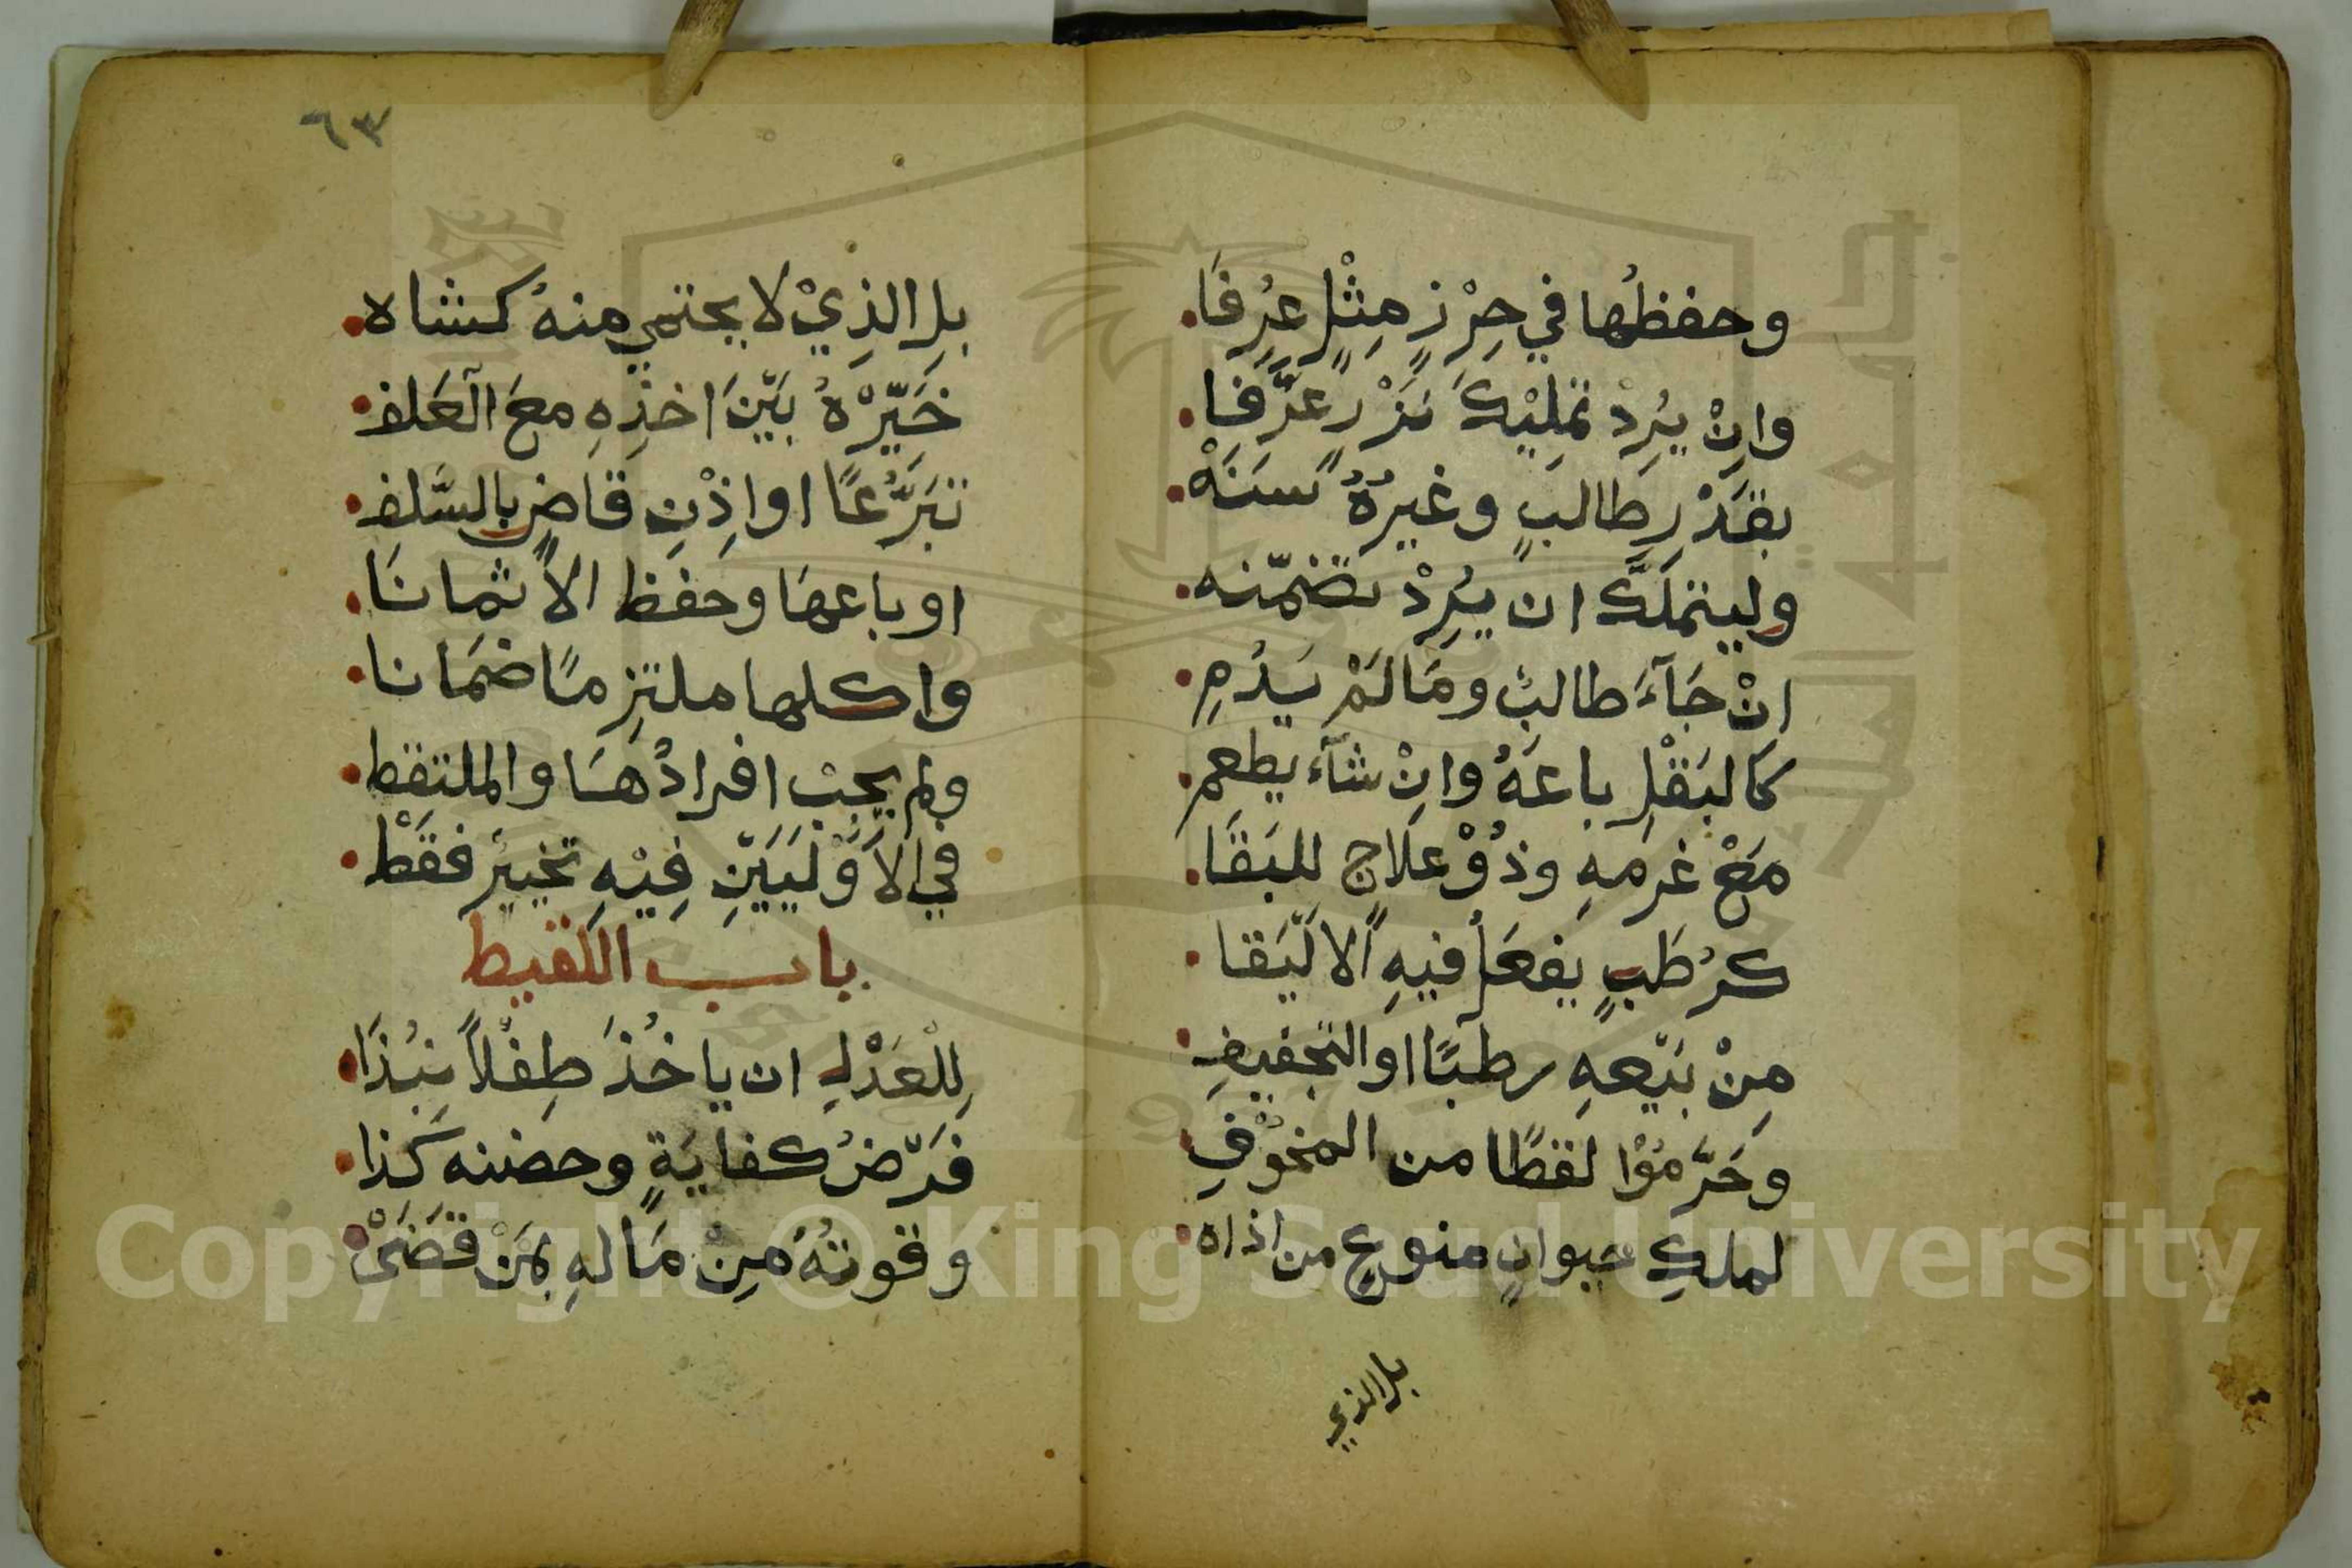 وحفظُها في حِرْزِ مِثْلٍ عُرِفَا
وانْ يُرِدْ تمليْكَ نَزْرٍ عَرَّفَا
بقَدْرِ طالبٍ وغيرُهُ سَنَهْ
وليتملَّك ان يُرِدْ تضمّنه
انْ جَآءَ طالبٌ ومَا لَمْ يَدُمِ
كالبَقْلِ باعَهُ وانْ شآء يطعم
مَعْ غرمهِ وذُوْ علاجٍ للبَقَا
كرُطَبٍ يفعَلُ فيهِ الاليَقا
مِنْ بَيْعهِ رطبًا او التجفيفِ
وحَرَّمُوْا لقطًا من المخوْفِ
لملكِ حيوانٍ منوعٍ من اذاه
بل الذي
٦٣
بلِ الذِيْ لا يحتمي منهُ كشاه
خَيِّرْهُ بَيْنَ اخذِهِ معَ العَلف
تبَرُّعًا او اذْنِ قاضٍ بالسَّلفِ
او باعهَا وحفظ الاثمانَا
واكلها ملتزِمًا ضمَانا
ولم يجبْ افرادُهَا والملتقِط
في الاوَّليَيْنِ فِيْهِ تخييرٌ فقَطْ
باب اللقيط
لِلْعَدْلِ ان ياخُذَ طِفْلاً نُبِذَا
فَرْضُ كفايَةٍ وحضنه كَذا
وقوتهُ مِنْ مَالهِ بمَنْ قضَىْ
Copyright © King Saud University